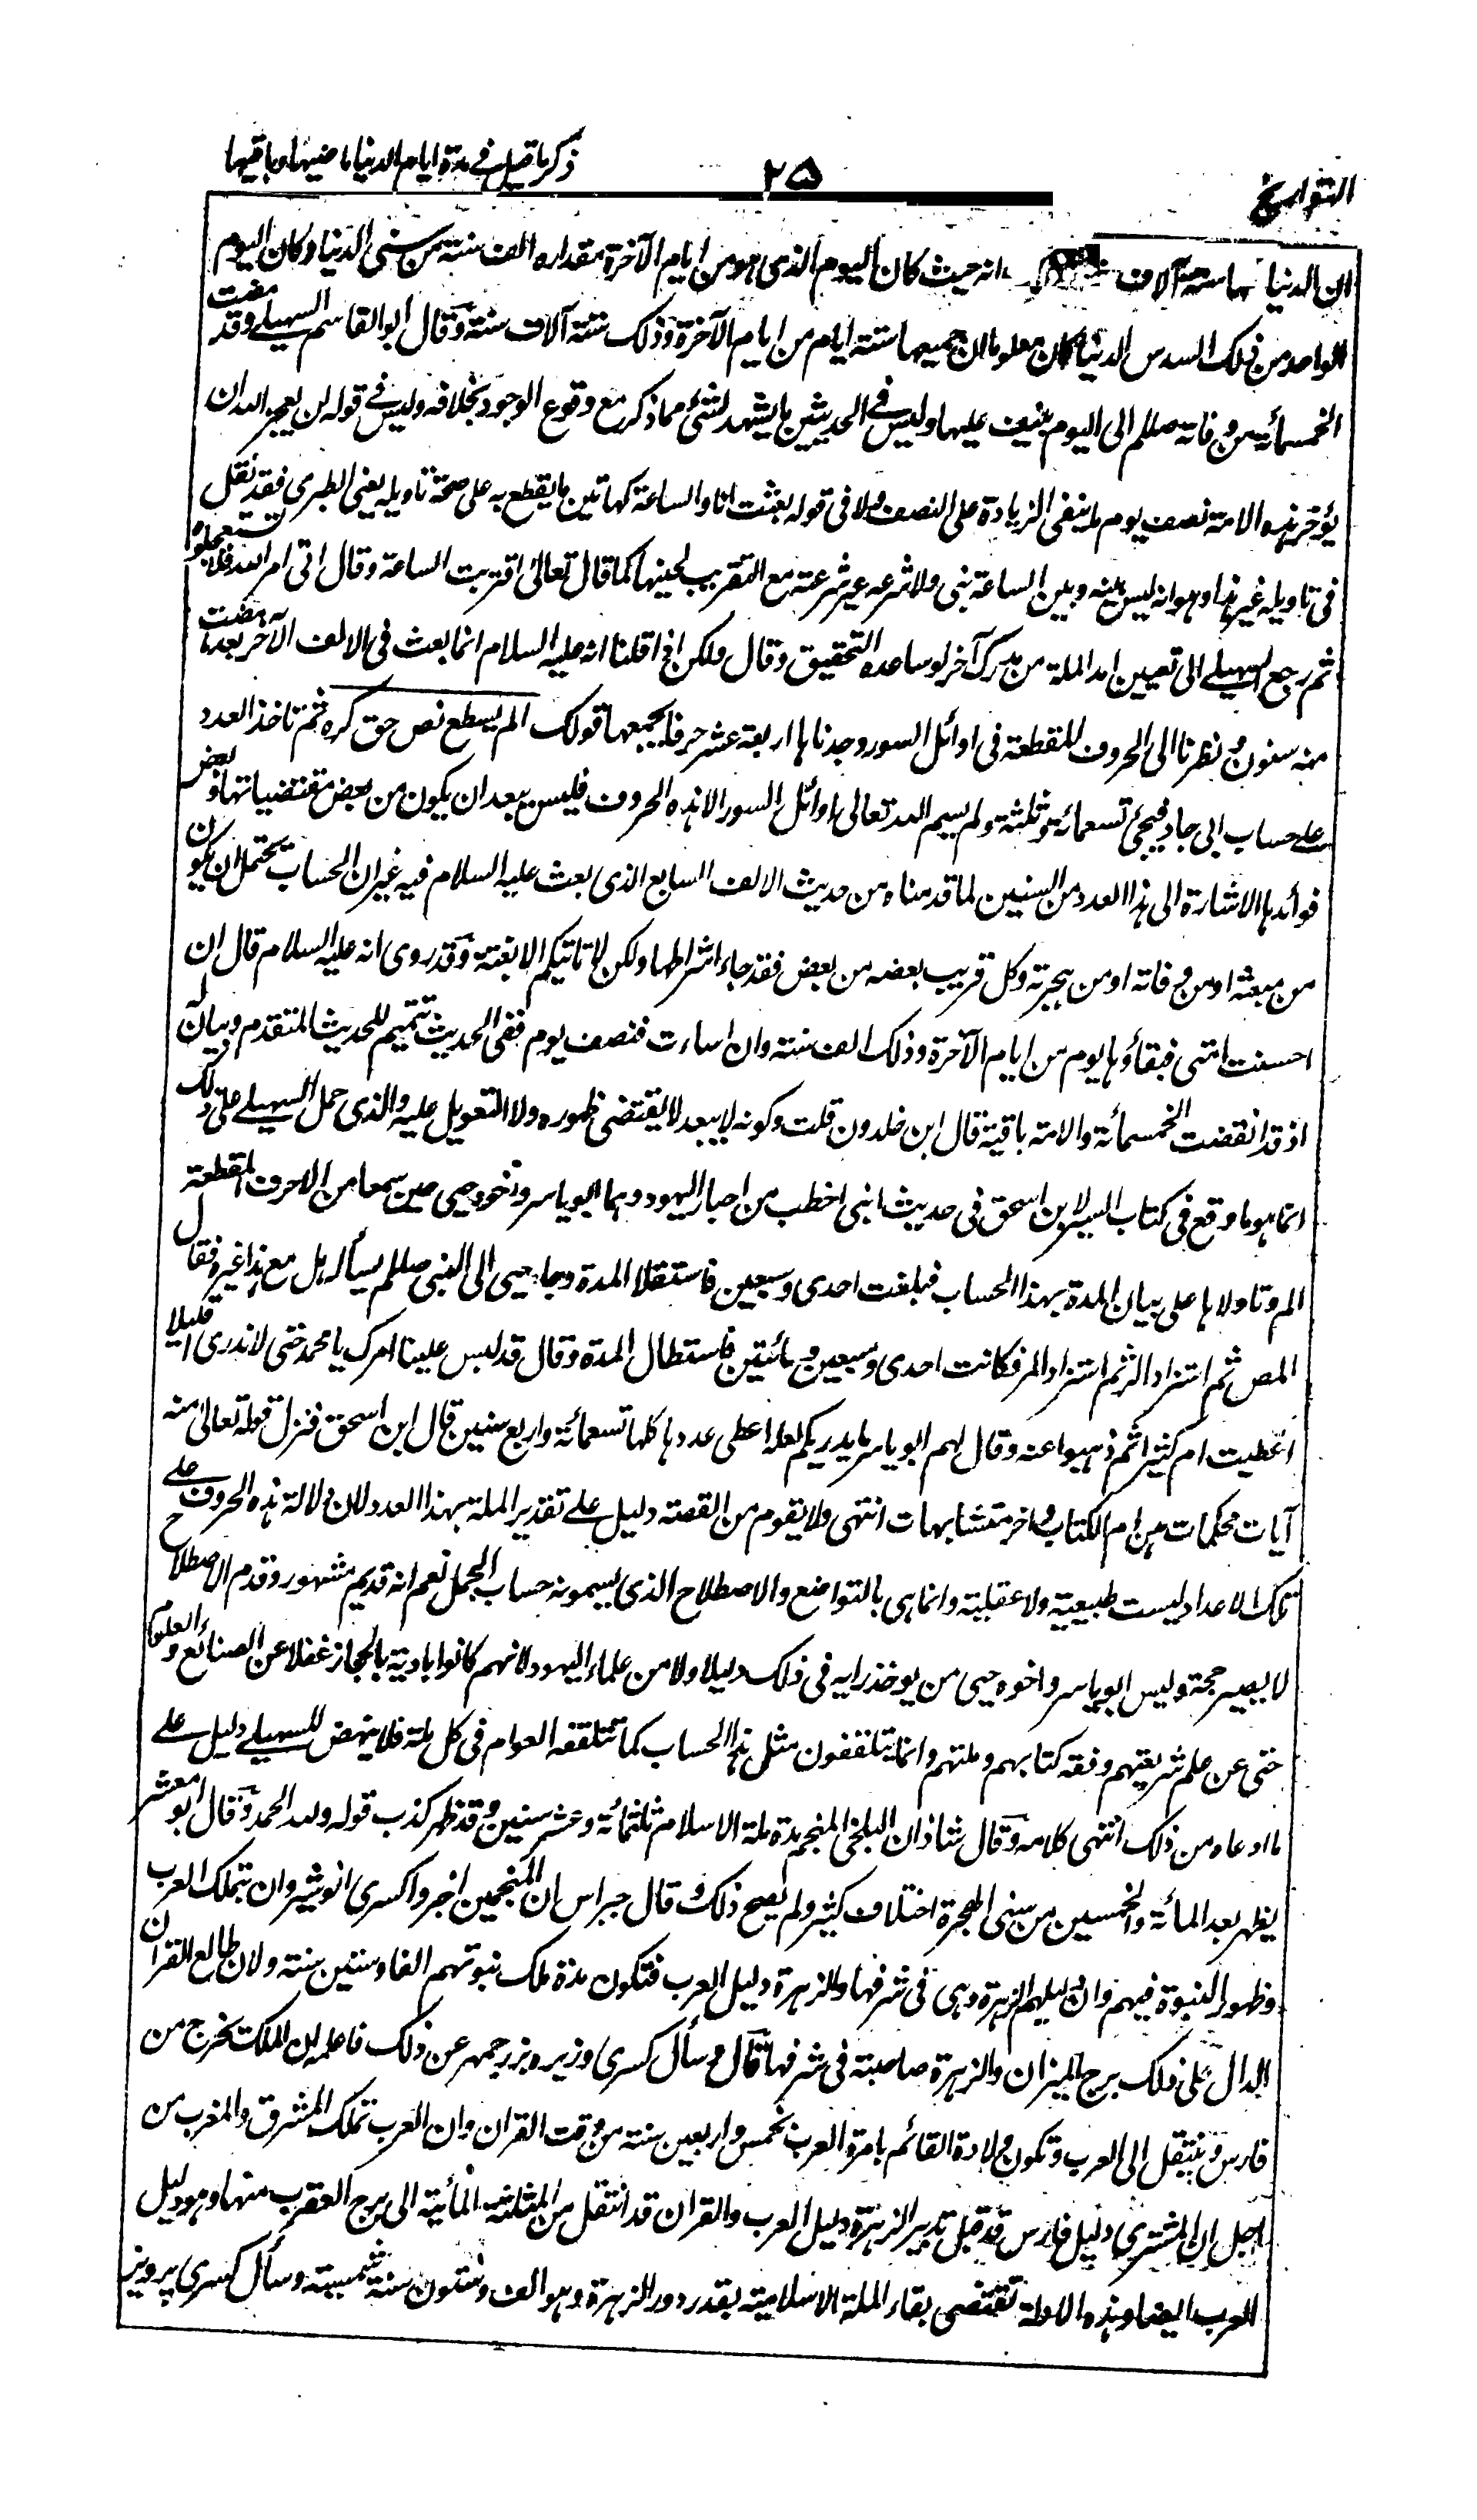 التواريخ
٢٥
ذكر ما قيل في مدة ايام الدنيا ماضيها وباقيها
ان الدنيا ستة آلاف انه حيث كان اليوم الذى هو من ايام الآخرة مقداره الف سنة من سنى الدنيا وكان اليوم
الواحد من ذلك السدس الدنيا كان معلوما ان جميعها ستة ايام من ايام الآخرة وذلك ستة آلاف سنة وقال ابو القاسم السهيلے وقد مضت
الخمسمائة من وفاته صللم الى اليوم بنيف عليها وليس فى الحديثين ما يشهد لشئ مما ذكر مع وقوع الوجود بخلافه وليس فے قوله لن يعجز الله ان
يؤخر هذه الامة نصف يوم ما ينفى الزيادة على النصف ولا فى قوله بعثت انا والساعة كهاتين ما يقطع به على صحة تاويله يعنى الطبرى فقد نقل
فى تاويله غير هذا وهو انه ليس بينه وبين الساعة نبى ولا شرعه غير شرعته مع التقريب لحينها كما قال تعالى اقتربت الساعة وقال اتى امر الله فلا تستعجلوه
ثم رجع السهيلے الى تعيين امد الملة من مدرك آخر لو ساعده التحقيق وقال ولكن اذا قلنا انه عليه السلام انما بعث فى الالف الآخر بعد ما مضت
منه سنون ونظرنا الى الحروف المقطعة فى اوائل السور وجدناها اربعة عشر حرفا يجمعها قولك الم يسطع نص حق كره ثم تاخذ العدد
علے حساب ابى جاد فيجئ تسعمائة وثلثة ولم يسم الله تعالى اوائل السور الا هذه الحروف فليس يبعد ان يكون من بعض مقتضياتها وبعض
فوائدها الاشارة الى هذا العدد من السنين لما قدمناه من حديث الالف السابع الذى بعث عليه السلام فيه غير ان الحساب يحتمل ان يكون
من مبعثه او من وفاته او من هجرته وكل قريب بعضه من بعض فقد جاء اشراطها ولكن لا تاتيكم الا بغتة وقد روى انه عليه السلام قال ان
احسنت امتى فبقاؤها يوم من ايام الآخرة وذلك الف سنة وان اساءت فنصف يوم ففى الحديث تتميم للحديث المتقدم وبيان له
اذ قد انقضت الخمسمائة والامة باقية قال ابن خلدون قلت وكونه لا يبعد لا يقتضى ظهوره ولا التعويل عليه والذى حمل السهيلے على ذلك
انما هو ما وقع فى كتاب السير لابن اسحق فى حديث ابنى اخطب من احبار اليهود وهما ابو ياسر واخوه حيى حين سمعا من الاحرف المقطعة
الم وتاولاها على بيان المدة بهذا الحساب فبلغت احدى وسبعين فاستقلا المدة وجاء حيى الى النبى صللم يسأله هل مع هذا غيره فقال
المص ثم استزاد الر ثم استزاد المر فكانت احدى وسبعين ومائتين فاستطال المدة وقال قد لبس علينا امرك يا محمد حتى لا ندرى اقليلا
اعطيت ام كثيرا ثم ذهبوا عنه وقال لهم ابو ياسر ما يدريكم لعله اعطى عددها كلها تسعمائة واربع سنين قال ابن اسحق فنزل قوله تعالى منه
آيات محكمات هن ام الكتاب واخر متشابهات انتهى ولا يقوم من القصة دليل علے تقدير الملة بهذا العدد لان دلالة هذه الحروف علے
تلك الاعداد ليست طبيعية ولا عقلية وانما هى بالتواضع والاصطلاح الذى يسمونه حساب الجمل نعم انه قديم مشهور وقدم الاصطلاح
لا يصير حجة وليس ابو ياسر واخوه حيى من يوخذ رايه فى ذلك دليلا ولا من علماء اليهود لانهم كانوا بادية بالحجاز غفلا عن الصنائع والعلوم
حتى عن علم شريعتهم وفقه كتابهم وملتهم وانما يتلقفون مثل هذا الحساب كما تتلقفه العوام فى كل ملة فلا ينهض للسهيلے دليل علے
ما ادعاه من ذلك انتهى كلامه وقال شاذان البلخى المنجم مدة ملة الاسلام ثلثمائة وعشر سنين وقد ظهر كذب قوله ولله الحمد وقال ابو معشر
يظهر بعد المائة والخمسين من سنى الهجرة اختلاف كثير ولم يصح ذلك وقال جراس ان المنجمين اخبروا كسرى انوشيروان بتملك العرب
وظهور النبوة فيهم وان دليلهم الزهرة وهى فى شرفها والزهرة دليل العرب فتكون مدة ملك نبوتهم الفا وستين سنة ولان طالع القران
الدال على ذلك برج الميزان والزهرة صاحبته فى شرفها قال وسأل كسرى وزيره بزرجمهر عن ذلك فاعلمه ان الملك يخرج من
فارس وينتقل الى العرب وتكون ولادة القائم بامرة العرب بخمس واربعين سنة من وقت القران وان العرب تملك المشرق والمغرب من
اجل ان المشترى دليل فارس قد قبل تدبير الزهرة دليل العرب والقران قد انتقل من المثلثة المائية الى برج العقرب منها وهو دليل
العرب ايضا وهذه الادلة تقتضى بقاء الملة الاسلامية بقدر دور الزهرة وهو الف وستون سنة شمسية وسأل كسرى پرويز